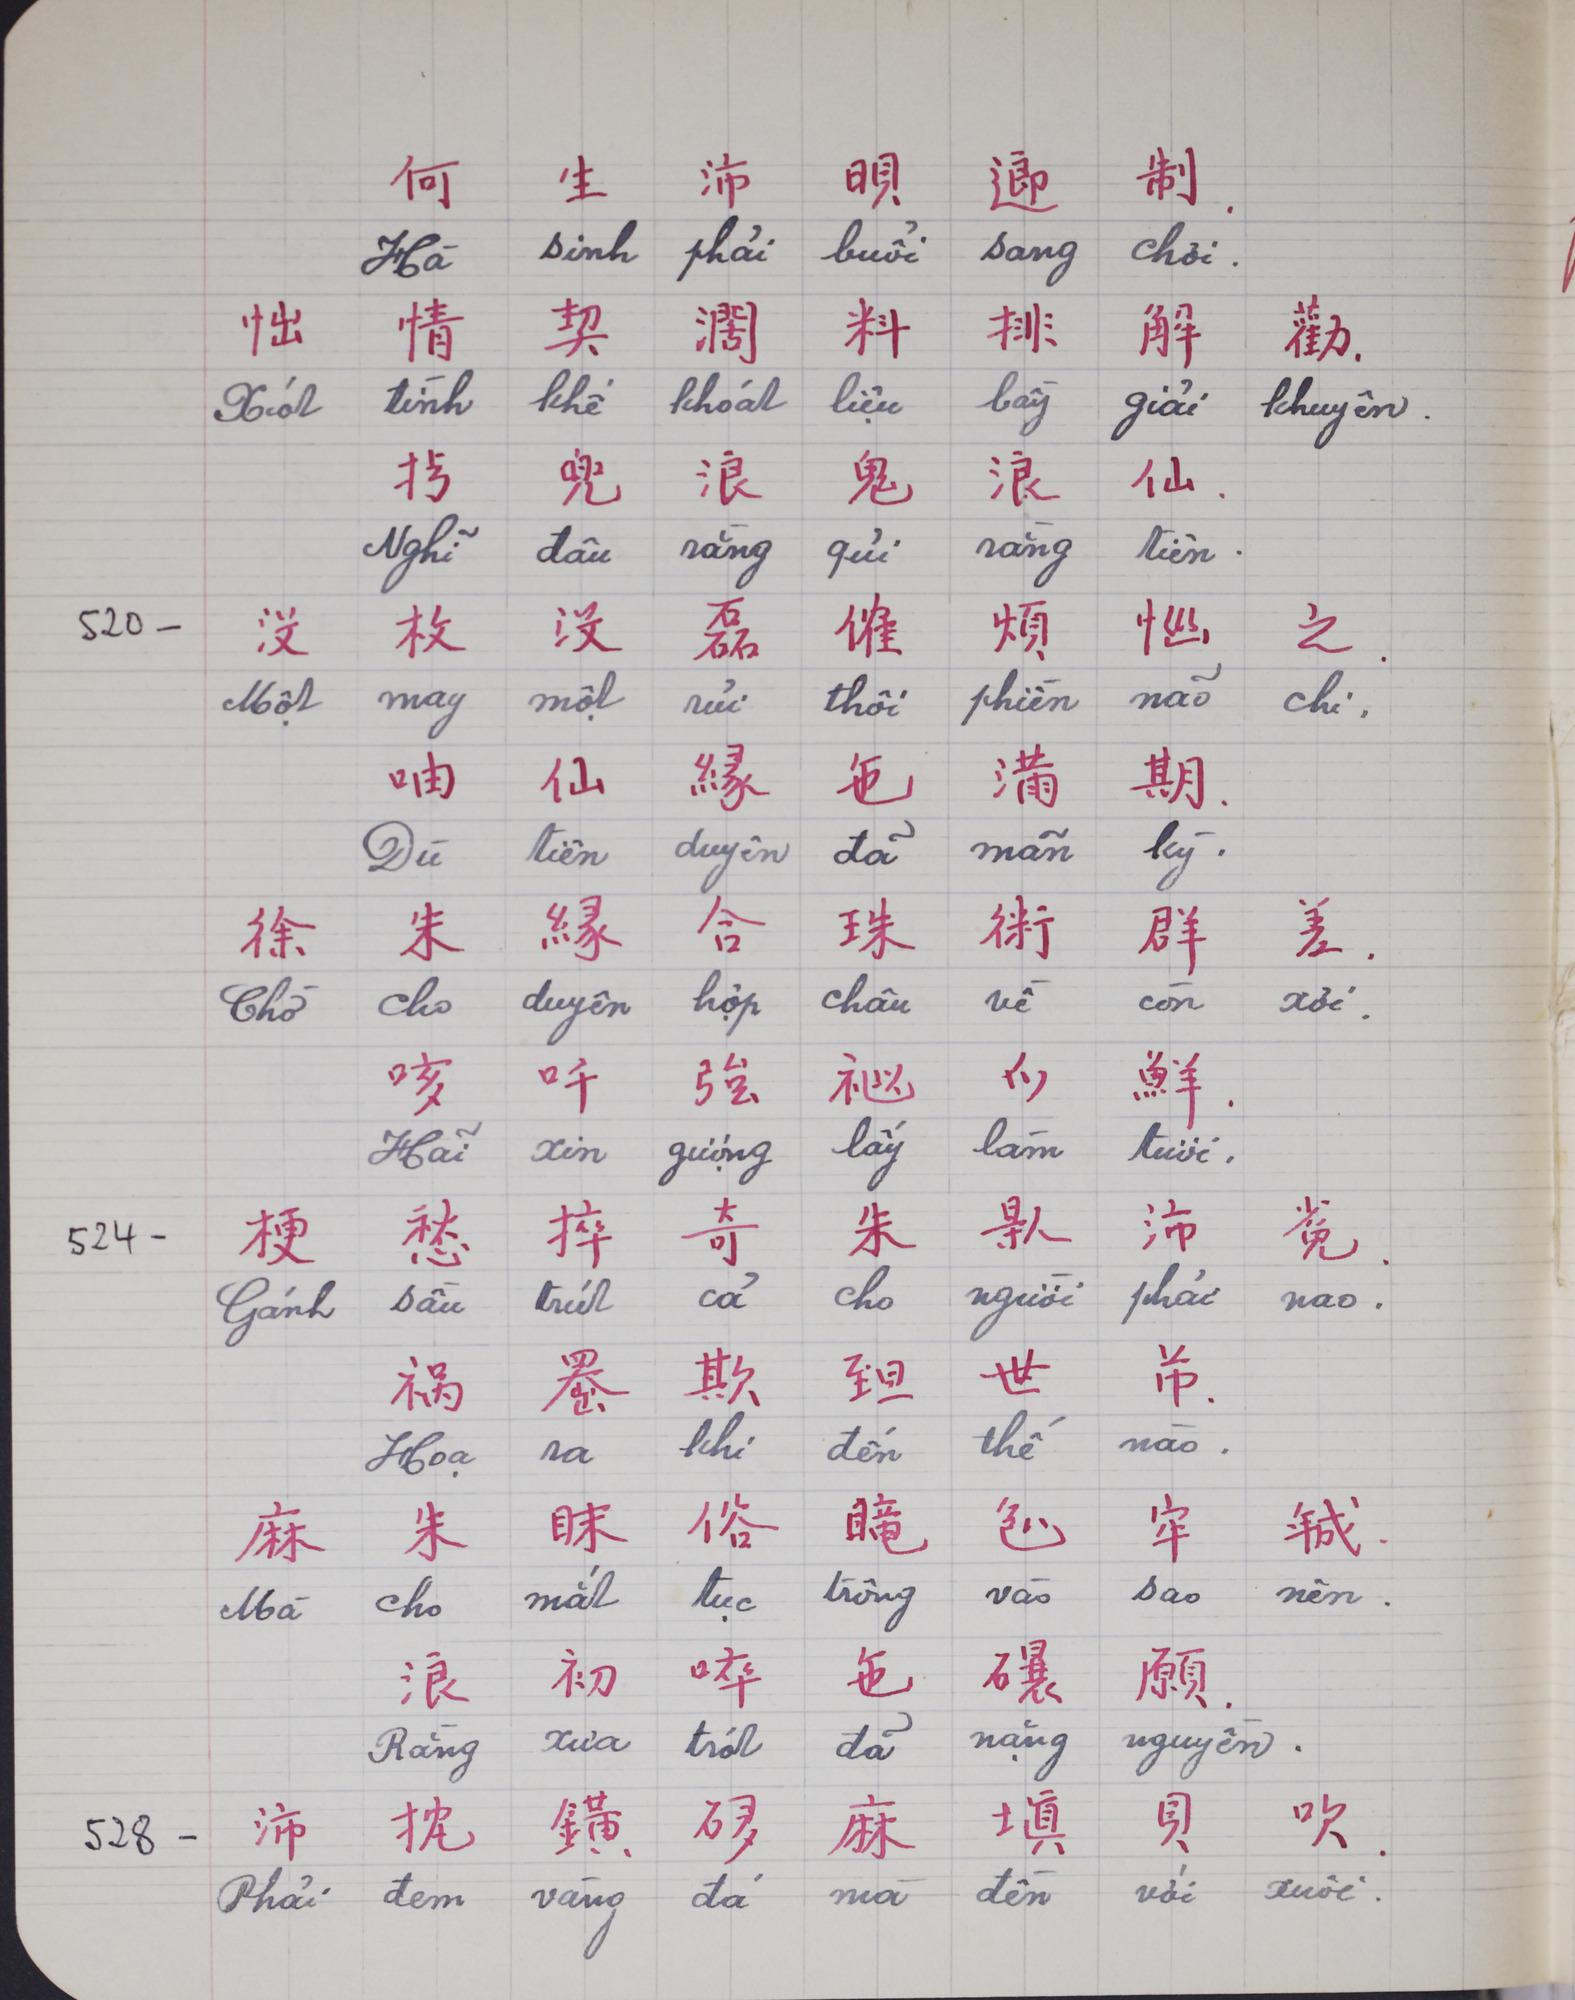 何 生 沛 䀡 𨖅 制.
Hà sinh phải buổi sang chơi.
怞 情 契 濶 料 排 解 勸.
Xót tình khế khoát liệu bầy giải khuyên.
𢪀 兜 浪 鬼 浪 仙.
Nghĩ đâu rằng quỉ rằng tiên.
520 - 没 枚 没 磊 傕 煩 㛴 之.
Một may một rủi thôi phiền não chi.
𠰺 仙 緣 㐌 滿 期.
Dù tiên duyên đã mãn kỳ.
徐 朱 緣 合 珠 術 群 差.
Chờ cho duyên hợp châu về còn xơi.
咳 吀 強 𥙩 𫜵 鮮.
Hãi xin gượng lấy làm tươi.
524 - 梗 愁 捽 奇 朱 𠊛 沛 㝹.
Gánh sầu trút cả cho người phải nao.
禍 𠚢 欺 𦤾 世 芇.
Hoạ ra khi đến thế nào.
麻 朱 眜 俗 𥊣 𠓨 牢 𢧚.
Mà cho mắt tục trông vào sao nên.
浪 初 啐 㐌 𥗾 願.
Rằng xưa trót đã nặng nguyền.
528 - 沛 抌 鐄 𥒥 麻 填 貝 吹.
Phải đem vàng đá mà đền với xuôi.